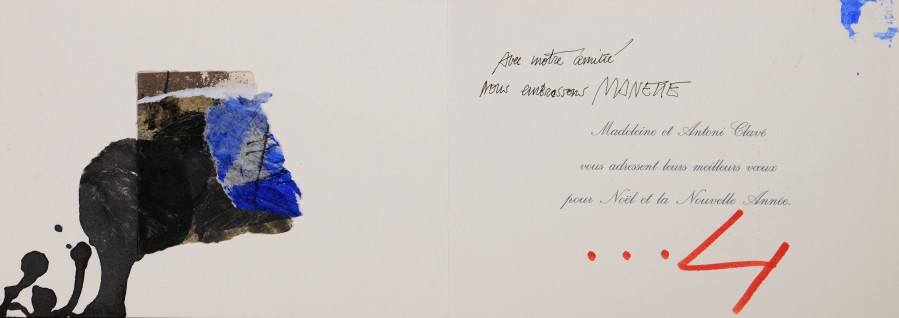 Avec notre amitié
nous embrassons MANETTE
Madeleine et Antoni Clavé
vous adressent leurs meilleurs vœux
pour Noël et la Nouvelle Année.
...4